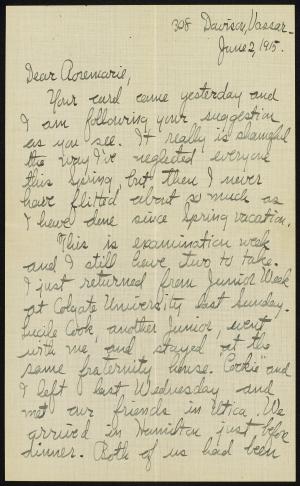 308 Davison, Vassar -
June 2, 1915.
Dear Rosemarie,
Your card came yesterday and
I am following your suggestion
as you see. It really is shameful
the way I've neglected everyone
this Spring, but then I never
have flitted about so much as
I have done since Spring vacation.
This is examination week
and I still have two to take.
I just returned from Junior Week
at Colgate University last Sunday.
Lucile Cook, another Junior, went
with me and stayed at the
same fraternity house. "Cookie" and
I left last Wednesday and
met our friends in Utica. We
arrived in Hamilton just before
dinner. Both of us had been